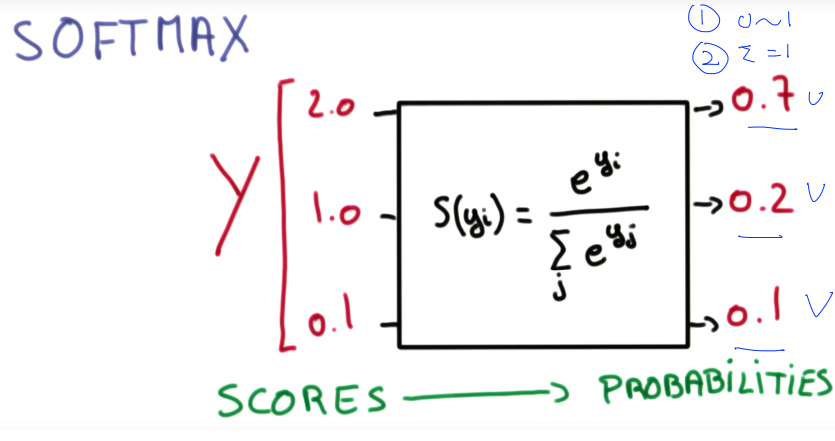 SOFTMAX
① 0~1
② Σ=1
Y
2.0
1.0
0.1
S(yi) = e^yi / Σj e^yj
→ 0.7 ∨
→ 0.2 ∨
→ 0.1 ∨
SCORES → PROBABILITIES